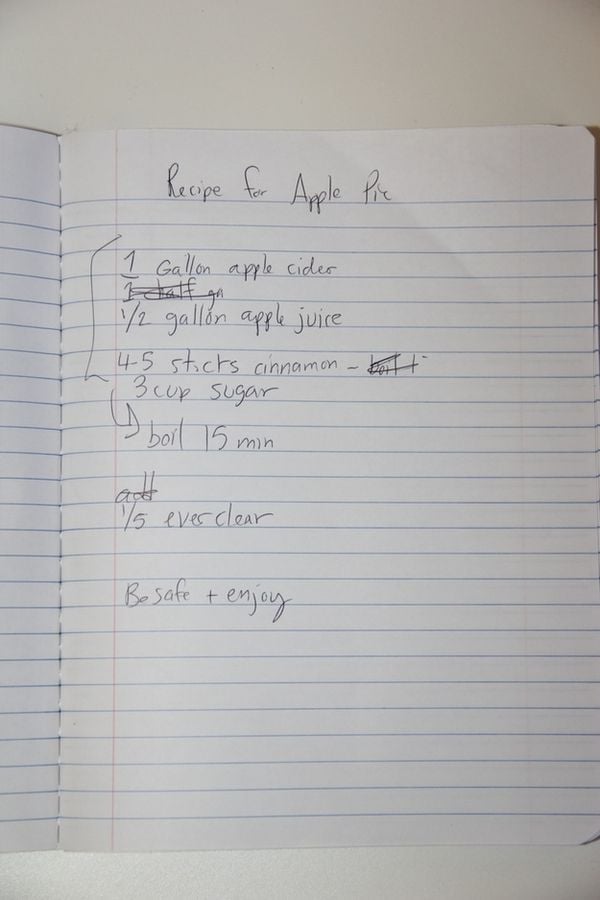 Recipe for Apple Pie
1 Gallon apple cider
1 half gn
1/2 gallon apple juice
4-5 sticks cinnamon -
3 cup sugar
boil 15 min
add
1/5 everclear
Be safe + enjoy